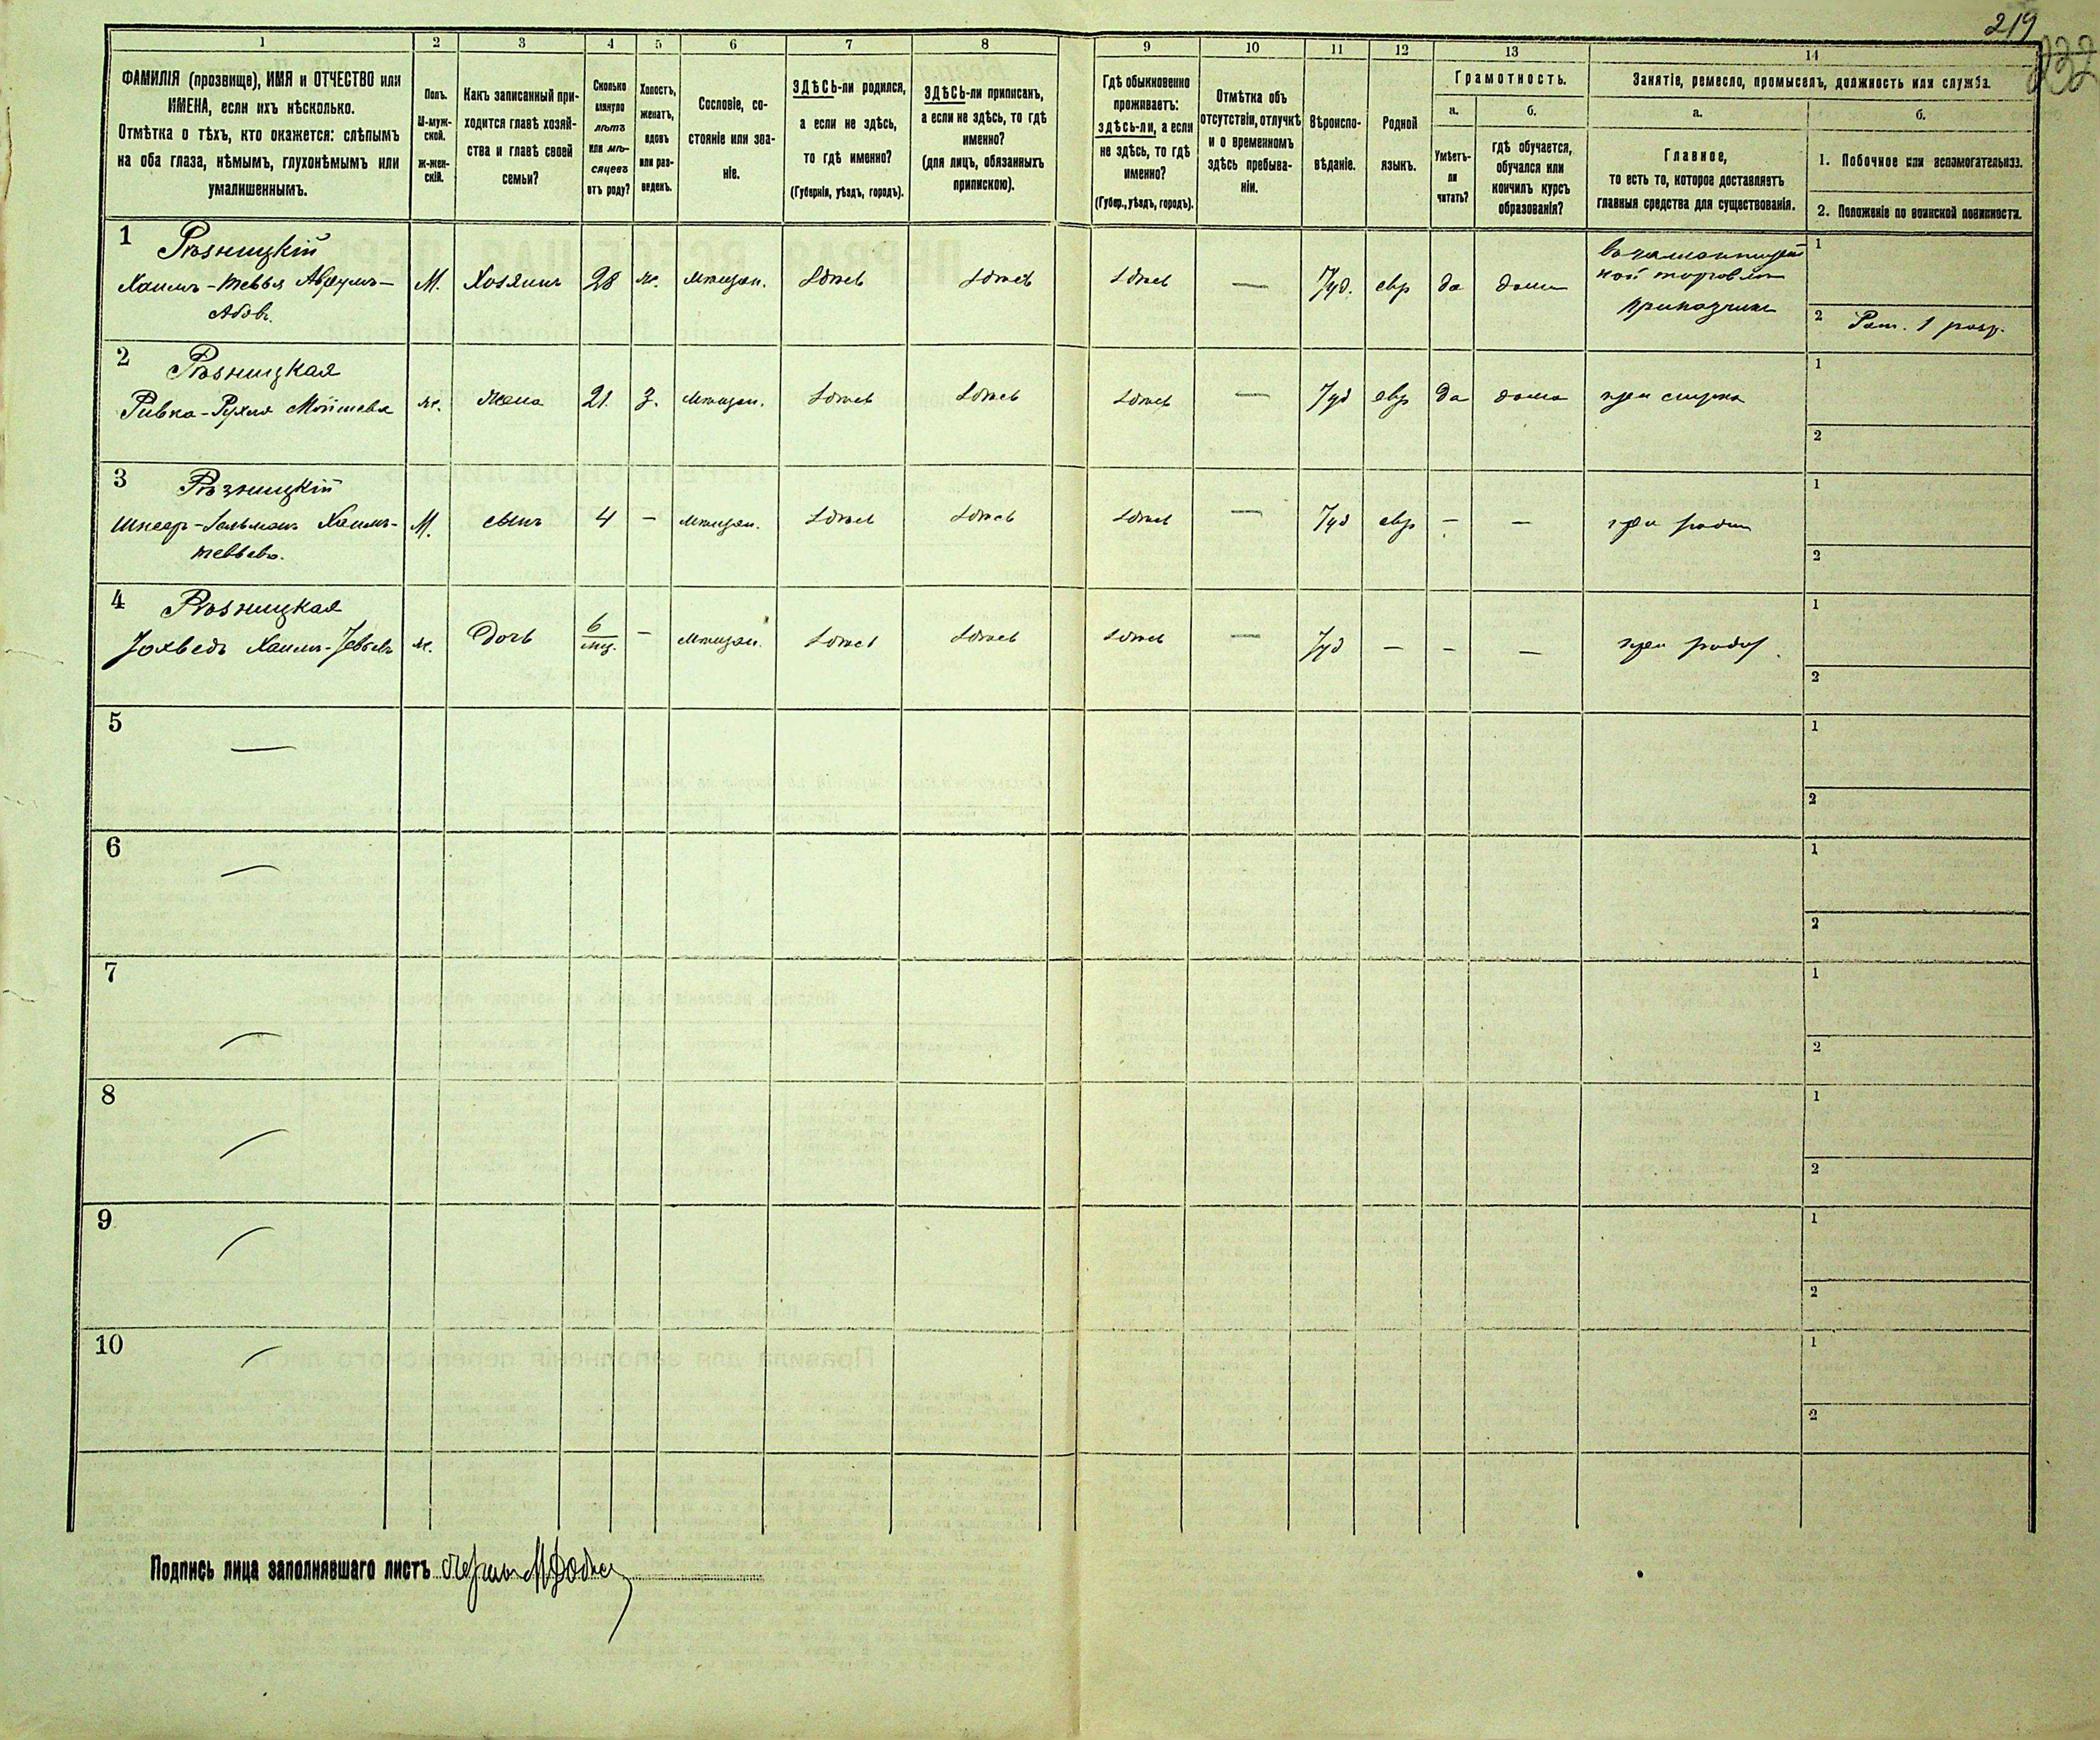 219
232
1
2
3
4
5
6
7
8
9
10
11
12
13
14
ФАМИЛІЯ (прозвище), ИМЯ и ОТЧЕСТВО или
ИМЕНА, если ихъ нѣсколько.
Отмѣтка о тѣхъ, кто окажется: слѣпымъ
на оба глаза, нѣмымъ, глухонѣмымъ или
умалишеннымъ.
Полъ.
М-муж-
ской.
Ж-жен-
скій.
Какъ записанный при-
ходится главѣ хозяй-
ства и главѣ своей
семьи?
Сколько
минуло
лѣтъ
или мѣ-
сяцевъ
отъ роду?
Холостъ,
женатъ,
вдовъ
или раз-
веденъ.
Сословіе, со-
стояніе или зва-
ніе.
ЗДѢСЬ-ли родился,
а если не здѣсь,
то гдѣ именно?
(Губернія, уѣздъ, городъ).
ЗДѢСЬ-ли приписанъ,
а если не здѣсь, то гдѣ
именно?
(для лицъ, обязанныхъ
припискою).
Гдѣ обыкновенно
проживаетъ:
здѣсь-ли, а если
не здѣсь, то гдѣ
именно?
(Губер., уѣздъ, городъ).
Отмѣтка объ
отсутствіи, отлучкѣ
и о временномъ
здѣсь пребыва-
ніи.
Вѣроиспо-
вѣданіе.
Родной
языкъ.
Грамотность.
а.
б.
Умѣетъ-
ли
читать?
гдѣ обучается,
обучался или
кончилъ курсъ
образованія?
Занятіе, ремесло, промыселъ, должность или служба.
а.
б.
Главное,
то есть то, которое доставляетъ
главныя средства для существованія.
1. Побочное или вспомогательное.
2. Положеніе по воинской повинности.
1
Рѣзницкій
Хаимъ-Тевья Абрумъ-
Абовъ.
М.
Хозяинъ
28
ж.
мѣщан.
Здѣсь
Здѣсь
Здѣсь
—
Іуд.
евр
да
дома
ной торговли
приказчикъ
1
2 Рат. 1 разр.
2
Рѣзницкая
Ривка-Рухля
ж.
жена
21.
З.
мѣщан.
Здѣсь
Здѣсь
Здѣсь
—
Іуд
евр
да
дома
при мужѣ
1
2
3
Рѣзницкій
Шнеер-Зальманъ Хаимъ-
Тевьевъ.
М.
сынъ
4
—
мѣщан.
Здѣсь
Здѣсь
Здѣсь
—
Іуд
евр
—
—
при родит
1
2
4
Рѣзницкая
Іохведъ Хаимъ-Тевьевъ
ж.
Дочь
6
мѣс.
—
мѣщан.
Здѣсь
Здѣсь
Здѣсь
—
Іуд
—
—
—
при родит.
1
2
5
—
1
2
6
—
1
2
7
—
1
2
8
—
1
2
9
—
1
2
10
—
1
2
Подпись лица заполнявшаго листъ